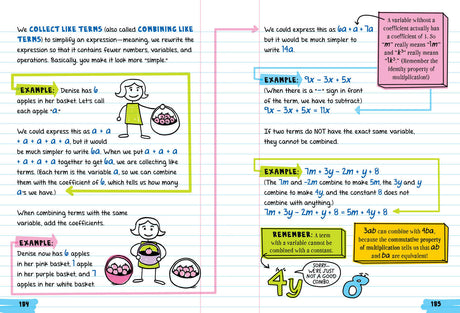 We COLLECT LIKE TERMS (also called COMBINING LIKE
TERMS) to simplify an expression—meaning, we rewrite the
expression so that it contains fewer numbers, variables, and
operations. Basically, you make it look more "simple."
EXAMPLE: Denise has 6
apples in her basket. Let's call
each apple "a."
We could express this as a + a
+ a + a + a + a, but it would
be much simpler to write 6a. When we put a + a + a
+ a + a + a together to get 6a, we are collecting like
terms. (Each term is the variable a, so we can combine
them with the coefficient of 6, which tells us how many
a's we have.)
When combining terms with the same
variable, add the coefficients.
EXAMPLE:
Denise now has 6 apples
in her pink basket, 1 apple
in her purple basket, and 7
apples in her white basket.
184
We could express this as 6a + a + 7a
but it would be much simpler to
write 14a.
A variable without a
coefficient actually has
a coefficient of 1. So
"m" really means "1m"
and "k³" really means
"1k³." (Remember the
identity property of
multiplication!)
EXAMPLE: 9x – 3x + 5x
(When there is a "–" sign in front
of the term, we have to subtract.)
9x – 3x + 5x = 11x
If two terms do NOT have the exact same variable,
they cannot be combined.
EXAMPLE: 7m + 3y – 2m + y + 8
(The 7m and -2m combine to make 5m, the 3y and y
combine to make 4y, and the constant 8 does not
combine with anything.)
7m + 3y – 2m + y + 8 = 5m + 4y + 8
REMEMBER: A term
with a variable cannot be
combined with a constant.
3ab can combine with 4ba,
because the commutative property
of multiplication tells us that ab
and ba are equivalent!
SORRY—
WE'RE JUST
NOT A GOOD
COMBO.
4y
8
185